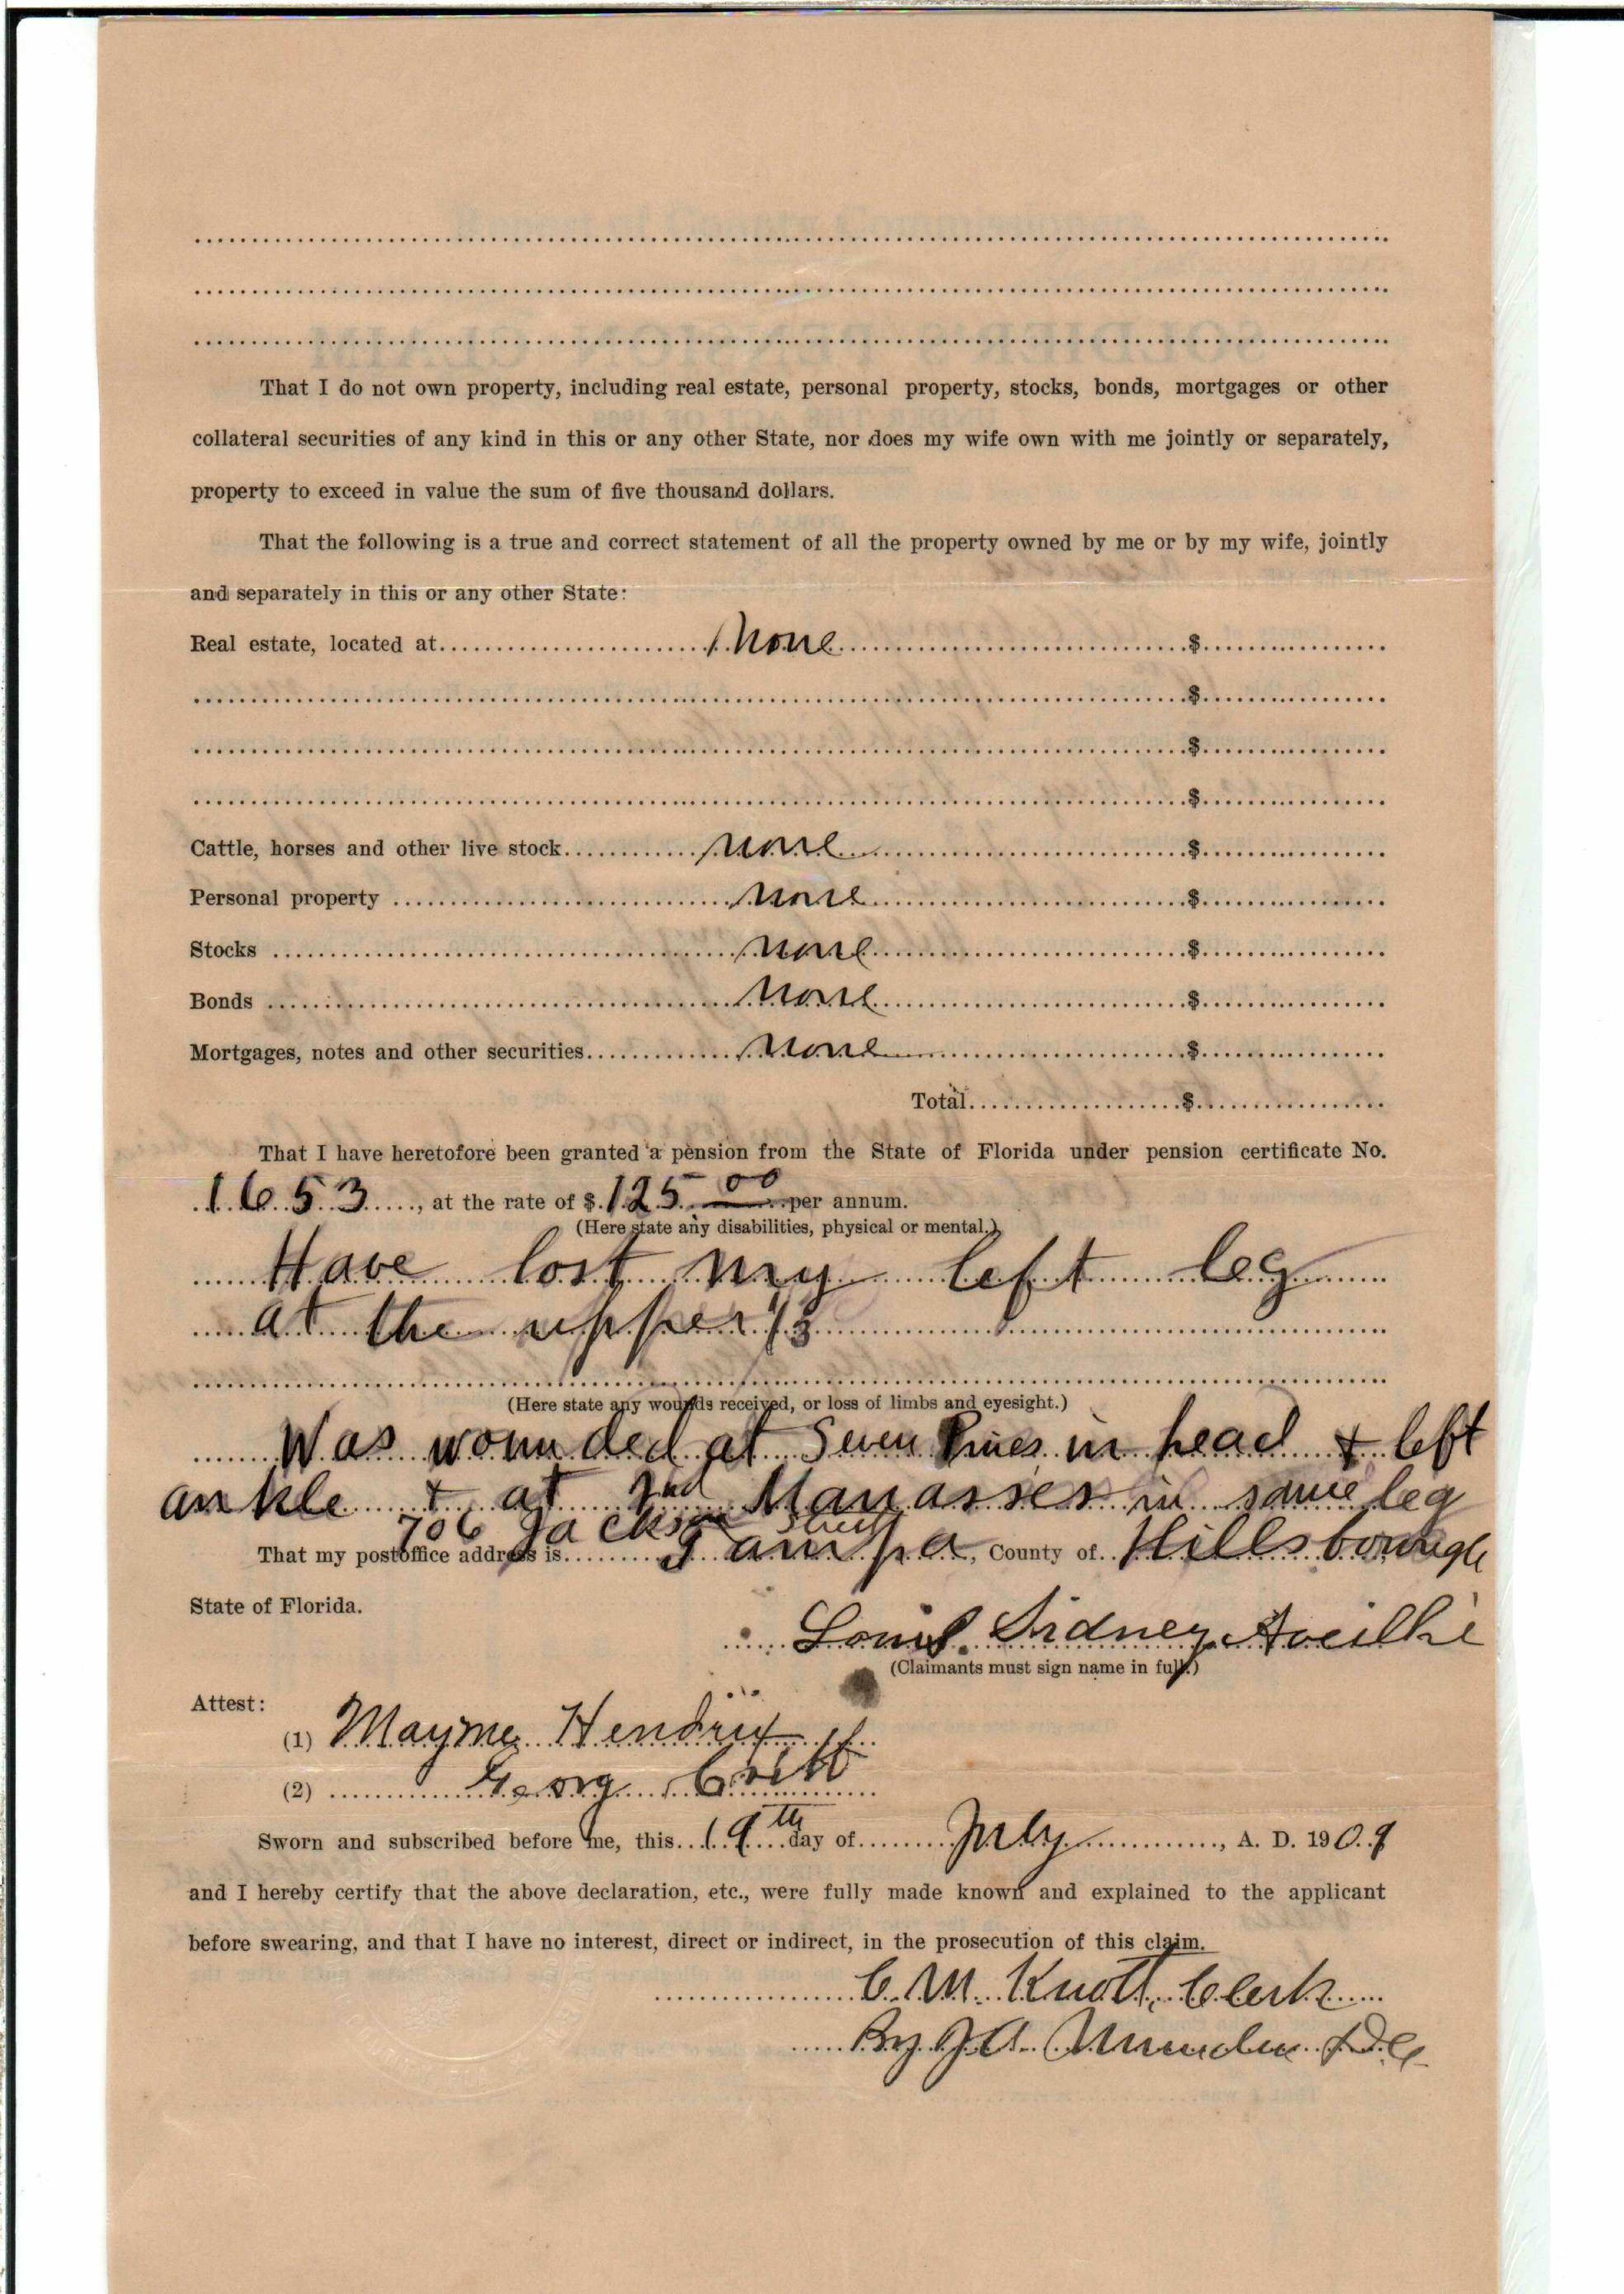 That I do not own property, including real estate, personal property, stocks, bonds, mortgages or other
collateral securities of any kind in this or any other State, nor does my wife own with me jointly or separately,
property to exceed in value the sum of five thousand dollars.
That the following is a true and correct statement of all the property owned by me or by my wife, jointly
and separately in this or any other State:
Real estate, located at None $
$
$
$
Cattle, horses and other live stock none $
Personal property none $
Stocks none $
Bonds none $
Mortgages, notes and other securities none $
Total $
That I have heretofore been granted a pension from the State of Florida under pension certificate No.
1653, at the rate of $125 00 per annum.
(Here state any disabilities, physical or mental.)
Have lost my left leg
at the upper 1/3
(Here state any wounds received, or loss of limbs and eyesight.)
Was wounded at Seven Pines in head & left
ankle & at 2nd Manasses in same leg
706 Jackson Street
That my postoffice address is Tampa, County of Hillsborough
State of Florida.
Louis. Sidney Aveilhe
(Claimants must sign name in full.)
Attest:
(1) Mayme Hendrix
(2) Georg
Sworn and subscribed before me, this 19th day of July, A. D. 1909
and I hereby certify that the above declaration, etc., were fully made known and explained to the applicant
before swearing, and that I have no interest, direct or indirect, in the prosecution of this claim.
C. M. Knott, Clerk
By J A. D.C.